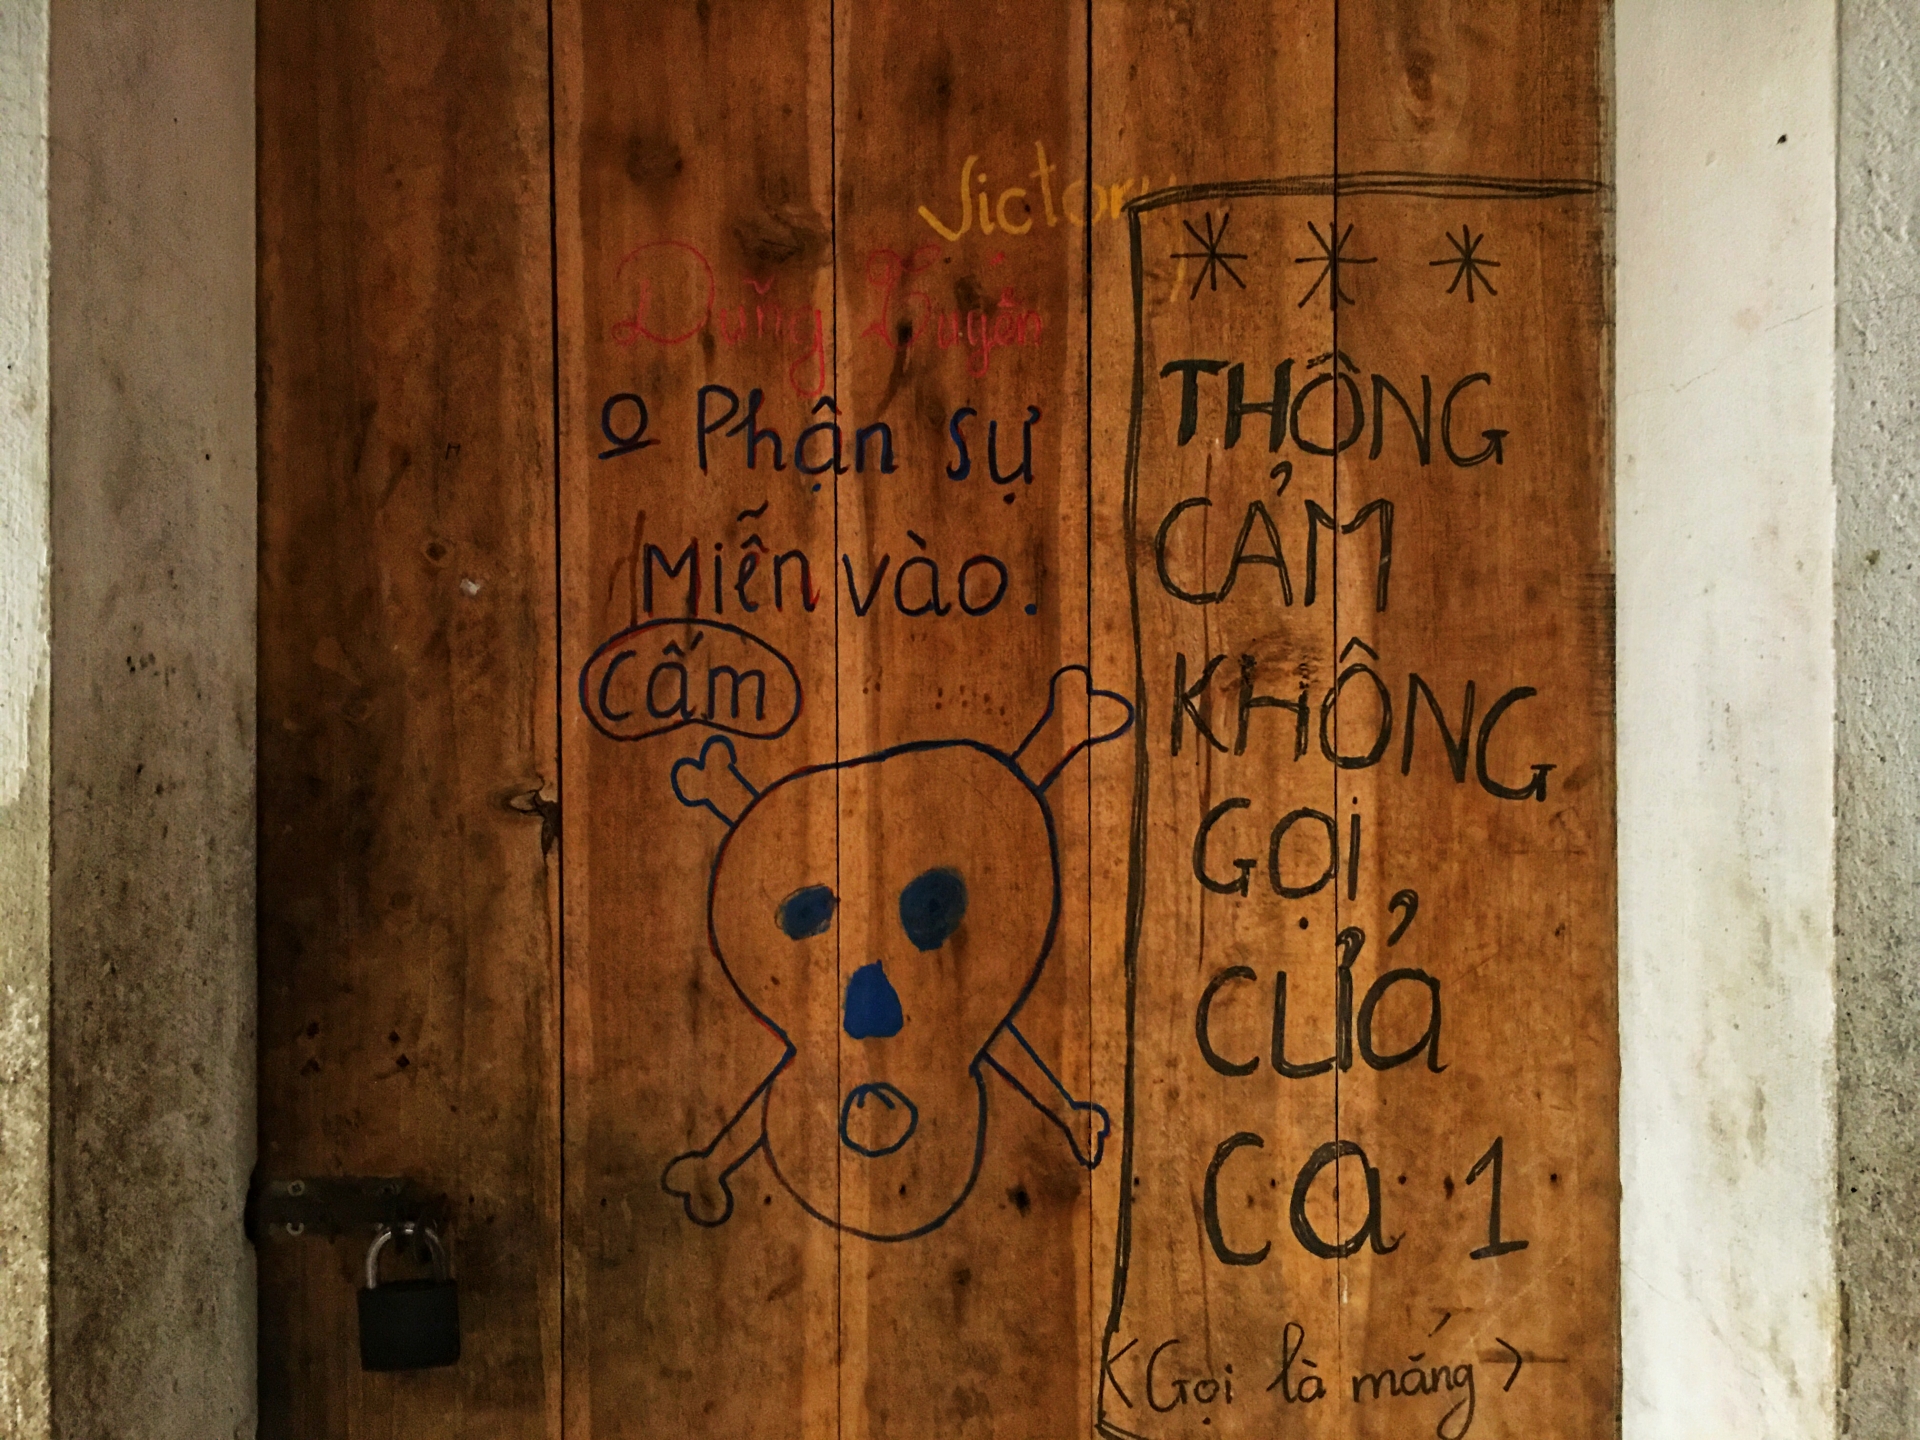 Victory
Dũng Tuyển
O Phận sự
Miễn vào.
Cấm
* * *
THÔNG
CẢM
KHÔNG
GỌI
CỬA
Ca 1
<Gọi là mắng>